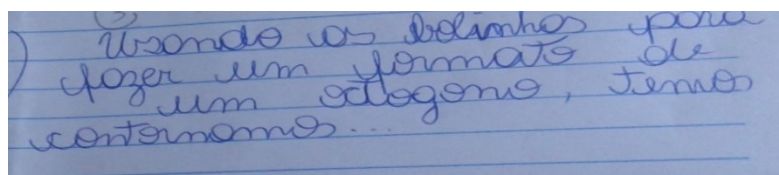 ) Usando as bolinhas para
fazer um formato de
um octogono, temos
contornamos...